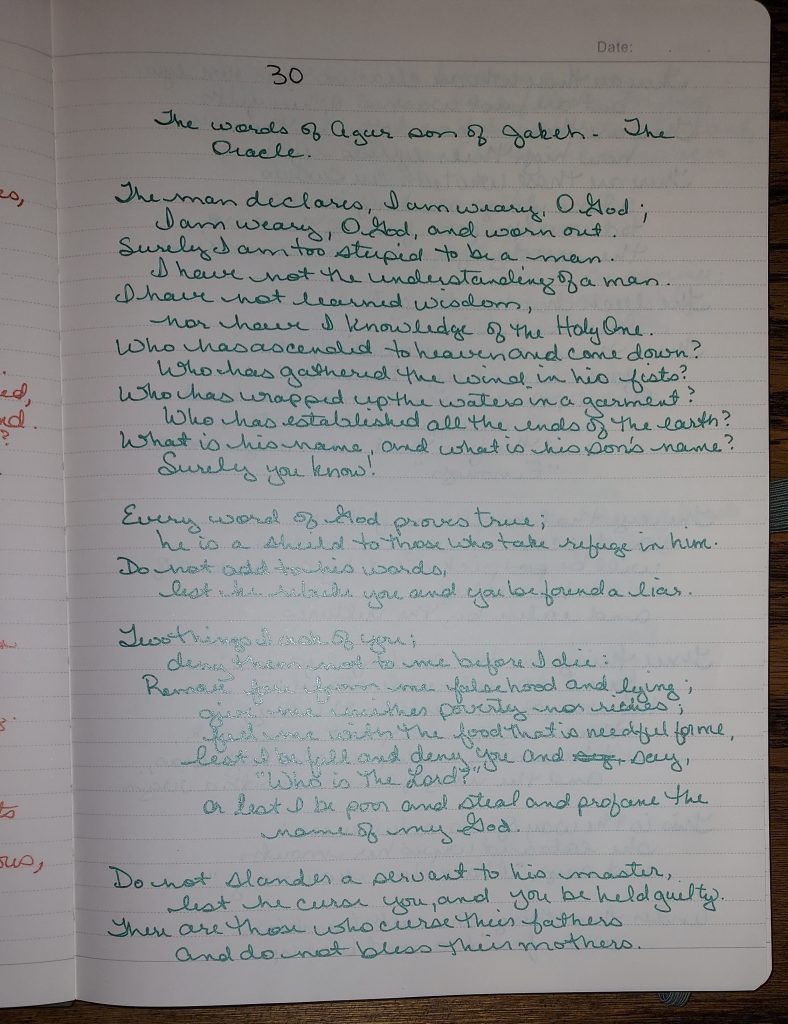 Date:
30
The words of Agur son of Jakeh - The
Oracle.
The man declares, I am weary, O God;
I am weary, O God, and worn out.
Surely I am too stupid to be a man.
I have not the understanding of a man.
I have not learned wisdom,
nor have I knowledge of the Holy One.
Who has ascended to heaven and come down?
Who has gathered the wind in his fists?
Who has wrapped up the waters in a garment?
Who has established all the ends of the earth?
What is his name, and what is his son's name?
Surely you know!
Every word of God proves true;
he is a shield to those who take refuge in him.
Do not add to his words,
lest he rebuke you and you be found a liar.
Two things I ask of you;
deny them not to me before I die:
Remove far from me falsehood and lying;
give me neither poverty nor riches;
feed me with the food that is needful for me,
lest I be full and deny you and say,
"Who is the Lord?"
or lest I be poor and steal and profane the
name of my God.
Do not slander a servant to his master,
lest he curse you, and you be held guilty.
There are those who curse their fathers
and do not bless their mothers.